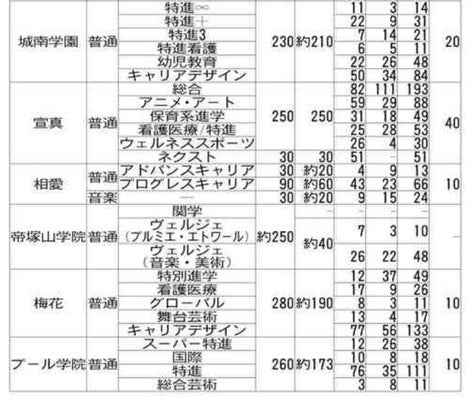 城南学園 普通 特進∞ 230 約210 11 3 14 20
特進＋ 22 9 31
特進3 7 14 21
特進看護 6 5 11
幼児教育 22 26 48
キャリアデザイン 50 34 84
宣真 普通 総合 250 250 82 111 193 40
アニメ・アート 59 29 88
保育系進学 31 18 49
看護医療/特進 25 28 53
ウェルネススポーツ 26 4 30
ネクスト 30 30 51 - 51
相愛 普通 アドバンスキャリア 30 約20 4 9 13 10
プログレスキャリア 90 約60 43 23 66
音楽 — 30 約20 9 15 24
帝塚山学院 普通 関学 約250 - - - - -
ヴェルジェ
(プルミエ・エトワール) 約40 7 3 10
ヴェルジェ
(音楽・美術) 26 22 48
梅花 普通 特別進学 280 約190 12 37 49 10
看護医療 17 9 26
グローバル 8 3 11
舞台芸術 13 4 17
キャリアデザイン 77 56 133
プール学院 普通 スーパー特進 260 約173 12 26 38 10
国際 10 8 18
特進 76 35 111
総合芸術 3 8 11